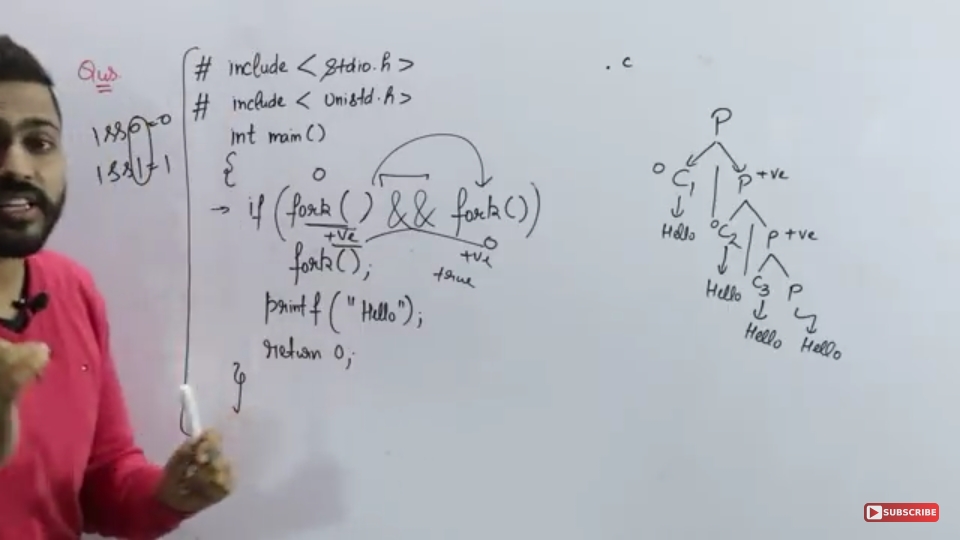 Qus.
1 && 0 = 0
1 && 1 = 1
# include < stdio.h >
# include < unistd.h >
int main()
{
0
→ if ( fork () && fork() )
+ve
0
+ve
true
fork();
printf ("Hello");
return 0;
}
. c
P
0 C1 P +ve
Hello 0 C2 P +ve
Hello C3 P
Hello Hello
SUBSCRIBE